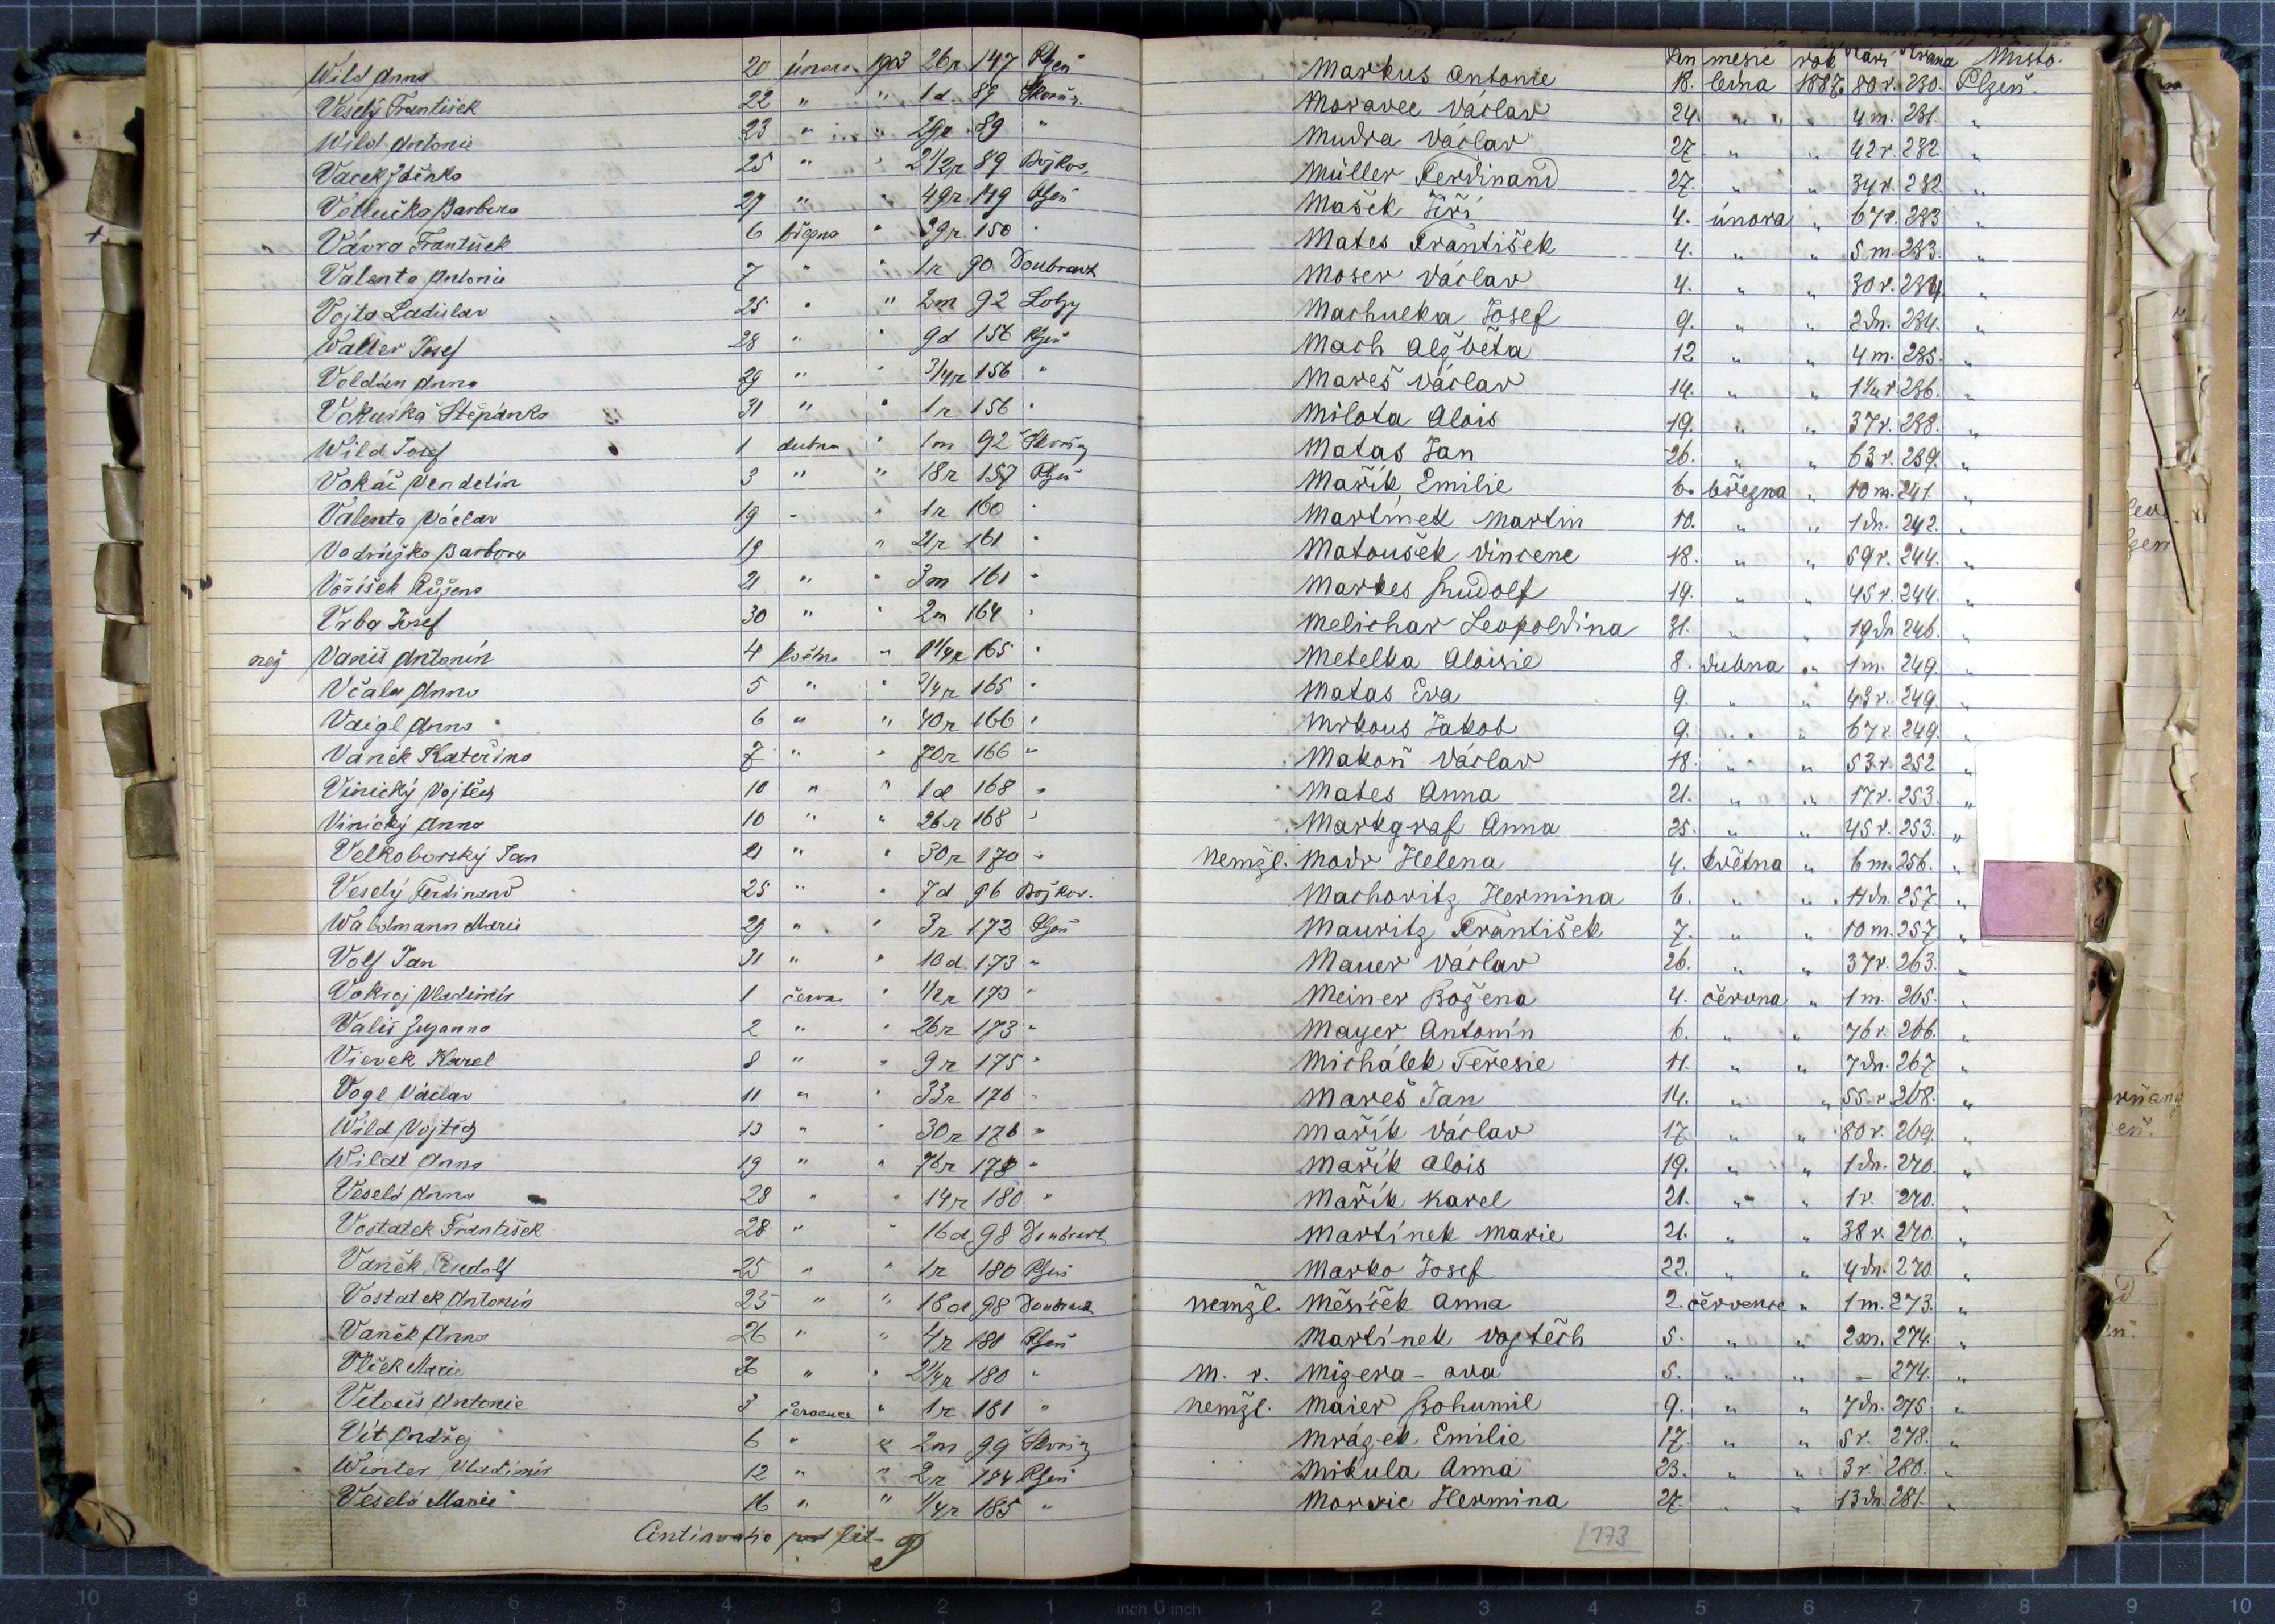 Wild Anna 20 února 1903 26r 147 Plzeň
Veselý František 22 " " 1d 89 Skvrň.
Wild Antonie 23 " " 29r 89 "
Vacek Zdeňka 25 " " 2 1/2r 89 Božkov.
Votlučka Barbora 27 " " 49r 149 Plzeň
Vávra František 6 března " 39r 150 "
Valenta Antonie 7 " " 1r 90 Doubravk
Vojta Ladislav 25 " " 2m 92 Lobzy
Walter Josef 28 " " 9d 156 Plzeň
Voldán Anna 29 " " 3/4r 156 "
Vokurka Štěpánka 31 " " 1r 156 "
Wild Josef 1 dubna " 1m 92 Skvrňa
Vokáč Vendelín 3 " " 18r 157 Plzeň
Valenta Václav 19 " " 1r 160 "
Vodrážka Barbora 19 " 21r 161 "
Voříšek Růžena 21 " " 3m 161 "
Vrba Josef 30 " " 2m 164 "
než Vaniš Antonín 4 května " 1 1/4r 165 "
Včala Anna 5 " " 3/4r 165 "
Vaigl Anna 6 " " 40r 166 "
Vaněk Kateřina 7 " " 70r 166 "
Vinický Vojtěch 10 " " 1d 168 "
Vinický Anna 10 " " 26r 168 "
Velkoborský Jan 21 " " 30r 170 "
Veselý Ferdinand 25 " " 7d 96 Božkov.
Waldmann Marie 29 " " 3r 172 Plzeň
Volf Jan 31 " " 10d 173 "
Vokroj Vladimír 1 června " 1/2r 173 "
Vališ Zuzanna 2 " " 26r 173 "
Vierek Karel 8 " " 9r 175 "
Vogl Václav 11 " " 33r 176 "
Wild Vojtěch 13 " " 30r 176 "
Wildt Anna 19 " " 76r 178 "
Veselá Anna 23 " " 14r 180 "
Vostatek František 28 " " 16d 98 Doubravk
Vaněk Rudolf 25 " " 1r 180 Plzeň
Vostatek Antonín 25 " " 18d 98 Doubravk
Vaněk Anna 26 " " 4r 180 Plzeň
Vlček Marie 26 " " 2 1/4r 180 "
Vitouš Antonie 3 července " 1r 181 "
Vít Ondřej 6 " " 2m 99 Skvrňa
Winter Vladimír 12 " " 2r 184 Plzeň
Veselá Marie 16 " " 1/4r 185 "
Continuatio post lit.
Den měsíc rok stáří strana Místo.
Markus Antonie 18. ledna 1887. 80r. 230. Plzeň.
Moravec Václav 24. " " 4m. 231. "
Mudra Václav 27 " " 42r. 232. "
Müller Ferdinand 27. " " 34r. 232 "
Mašek Jiří 4. února " 67r. 233 "
Mates František 4. " " 5m. 233. "
Moser Václav 4. " " 30r. 234 "
Machulka Josef 9. " " 2dn. 234. "
Mach Alžběta 12 " " 4m. 235. "
Mareš Václav 14. " " 1 1/4r. 236. "
Milota Alois 19. " " 37r. 238. "
Matas Jan 26. " " 63r. 239. "
Mařík Emilie 6. března " 10m. 241. "
Martínek Martin 10. " " 1dn. 242. "
Matoušek Vincenc 18. " " 59r. 244. "
Markes Rudolf 19. " " 45r. 244. "
Melichar Leopoldina 31. " " 19dn 246. "
Metelka Aloisie 8. dubna " 1m. 249. "
Matas Eva 9. " " 43r. 249. "
Mrkous Jakob 9. " " 67r. 249. "
Makoň Václav 18. " " 53r. 252 "
Mates Anna 21. " " 17r. 253. "
Markgraf Anna 25. " " 45r. 253. "
Nemžl. Modr Helena 4. května " 6m. 256. "
Machovitz Hermina 6. " " 14dn. 257. "
Mauritz František 7. " " 10m. 257. "
Mauer Václav 26. " " 37r. 263. "
Meiner Božena 4. června " 1m. 265. "
Mayer Antonín 6. " " 76r. 266. "
Michálek Teresie 11. " " 7dn. 267 "
Mareš Jan 14. " " 55.r. 268. "
Mařík Václav 17 " " 80r. 269. "
Mařík Alois 19. " " 1dn. 270. "
Mařík Karel 21. " " 1r. 270. "
Martínek Marie 21. " " 38r. 270. "
Marko Josef 22. " " 4dn. 270. "
nemžl. Měsíček Anna 2. července " 1m. 273. "
Martínek Vojtěch 5. " " 2m. 274. "
M. r. Mizera - ova 5. " " - 274. "
nemžl. Maier Bohumil 9. " " 7dn. 275. "
Mrázek Emilie 17. " " 5r. 278. "
Mikula Anna 23. " " 3r. 280. "
Morvic Hermina 27. " " 13dn. 281. "
173